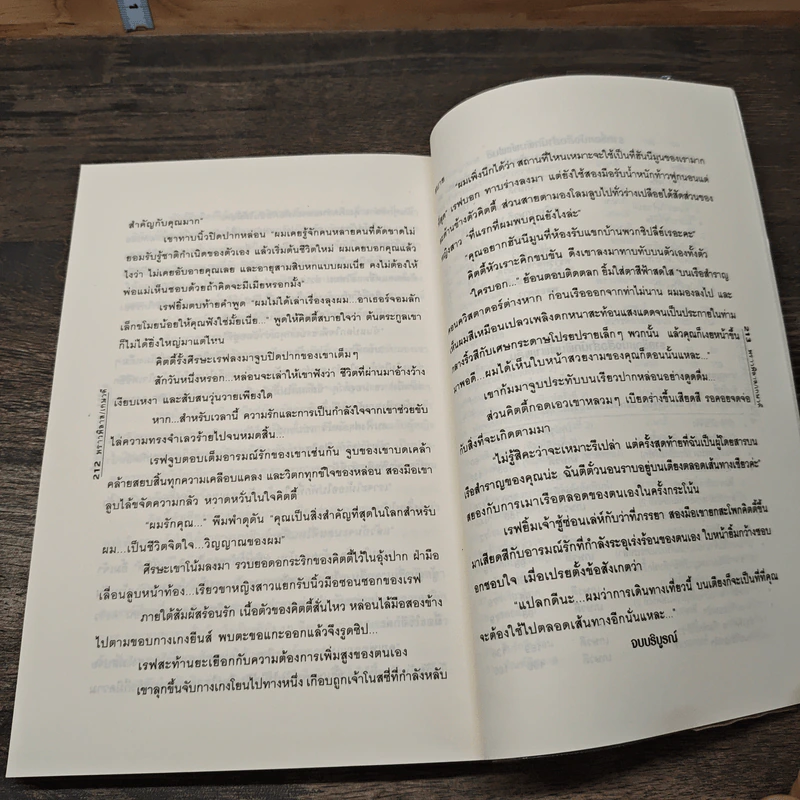 สำคัญกับคุณมาก"
เขาทาบนิ้วปิดปากหล่อน "ผมเคยรู้จักคนหลายคนที่ตัดขาดไม่
ยอมรับรู้ชาติกำเนิดของตัวเอง แล้วเริ่มต้นชีวิตใหม่ ผมเคยบอกคุณแล้ว
ไงว่า ไม่เคยอับอายคุณเลย และอายุสามสิบหกแบบผมเนี่ย คงไม่ต้องให้
พ่อแม่เห็นชอบด้วยถ้าคิดจะมีเมียหรอกมั้ง"
เรฟยิ้มตบท้ายคำพูด "ผมไม่ได้เล่าเรื่องลุงผม...อาเธอร์จอมลัก
เล็กขโมยน้อยให้คุณฟังใช่มั้ยเนี่ย..." พูดให้คิตตี้สบายใจว่า ต้นตระกูลเขา
ก็ไม่ได้ยิ่งใหญ่มาแต่ไหน
คิตตี้รั้งศีรษะเรฟลงมาจูบปิดปากของเขาเต็มๆ
สักวันหนึ่งหรอก...หล่อนจะเล่าให้เขาฟังว่า ชีวิตที่ผ่านมาอ้างว้าง
เงียบเหงา และสับสนวุ่นวายเพียงใด
หาก...สำหรับเวลานี้ ความรักและการเป็นกำลังใจจากเขาช่วยขับ
ไล่ความทรงจำเลวร้ายไปจนหมดสิ้น...
เรฟจูบตอบเต็มอารมณ์รักของเขาเช่นกัน จูบของเขาบดเคล้า
คล้ายสยบสิ้นทุกความเคลือบแคลง และวิตกทุกข์ใจของหล่อน สองมือเขา
ลูบไล้ขจัดความกลัว หวาดหวั่นในใจคิตตี้
"ผมรักคุณ..." พึมพำดุดัน "คุณเป็นสิ่งสำคัญที่สุดในโลกสำหรับ
ผม...เป็นชีวิตจิตใจ...วิญญาณของผม"
ศีรษะเขาโน้มลงมา รวบยอดอกระริกของคิตตี้ไว้ในอุ้งปาก ฝ่ามือ
เลื่อนลูบหน้าท้อง...เรียวขาหญิงสาวแยกรับนิ้วมือซอนซอกของเรฟ
ภายใต้สัมผัสร้อนรัก เนื้อตัวของคิตตี้สั่นไหว หล่อนไล้มือสองข้าง
ไปตามขอบกางเกงยีนส์ พบตะขอแกะออกแล้วจึงรูดซิป...
เรฟสะท้านยะเยือกกับความต้องการเพิ่มสูงของตนเอง
เขาลุกขึ้นจับกางเกงโยนไปทางหนึ่ง เกือบถูกเจ้าโนสซี่ที่กำลังหลับ
212 พราวพิลาส/เกษวดี
"ผมเพิ่งนึกได้ว่า สถานที่ไหนเหมาะจะใช้เป็นที่ฮันนีมูนของเรามาก
เรฟบอก ทาบร่างลงมา แต่ยังใช้สองมือรับน้ำหนักท้าวฟูกนอนแต่
ด้านข้างตัวคิตตี้ ส่วนสายตามองโลมลูบไปทั่วร่างเปลือยได้สัดส่วนของ
"ที่แรกที่ผมพบคุณยังไงล่ะ"
"คุณอยากฮันนีมูนที่ห้องรับแขกบ้านพวกชิปลี่ย์เรอะคะ"
คิตตี้หัวเราะคิกขบขัน ดึงเขาลงมาทาบทับบนตัวเองทั้งตัว
"ใครบอก..." ย้อนตอบติดตลก ยิ้มใส่ตาสีฟ้าสดใส "บนเรือสำราญ
ต่างหาก ก่อนเรือออกจากท่าไม่นาน ผมมองลงไป และ
ผมสีเหมือนเปลวเพลิงดกหนาสะท้อนแสงแดดจนเป็นประกายในท่าม
ริ้วสีกับเศษกระดาษโปรยปรายเล็กๆ พวกนั้น แล้วคุณก็เงยหน้าขึ้น
มาพอดี...ผมได้เห็นใบหน้าสวยงามของคุณก็ตอนนั้นแหละ..."
เขาก้มมาจูบประทับบนเรียวปากหล่อนอย่างดูดดื่ม...
ส่วนคิตตี้กอดเอวเขาหลวมๆ เบียดร่างขึ้นเสียดสี รอคอยจดจ่อ
กับสิ่งที่จะเกิดตามมา
"ไม่รู้สิคะว่าจะเหมาะรึเปล่า แต่ครั้งสุดท้ายที่ฉันเป็นผู้โดยสารบน
เรือสำราญของคุณน่ะ ฉันดีดิ้นนอนราบอยู่บนเตียงตลอดเส้นทางเชียวค่ะ"
สยองกับการเมาเรือตลอดของตนเองในครั้งกระโน้น
เรฟยิ้มเจ้าชู้ซ่อนเล่ห์กับว่าที่ภรรยา สองมือเขายกสะโพกคิตตี้ขึ้น
มาเสียดสีกับอารมณ์รักที่กำลังระอุเร่งร้อนของตนเอง ใบหน้ายิ้มกว้างชอบ
อกชอบใจ เมื่อเปรยตั้งข้อสังเกตว่า
"แปลกดีนะ...ผมว่าการเดินทางเที่ยวนี้ บนเตียงก็จะเป็นที่ที่คุณ
จะต้องใช้ไปตลอดเส้นทางอีกนั่นแหละ..."
จบบริบูรณ์
213 พราวพิลาส/เกษวดี